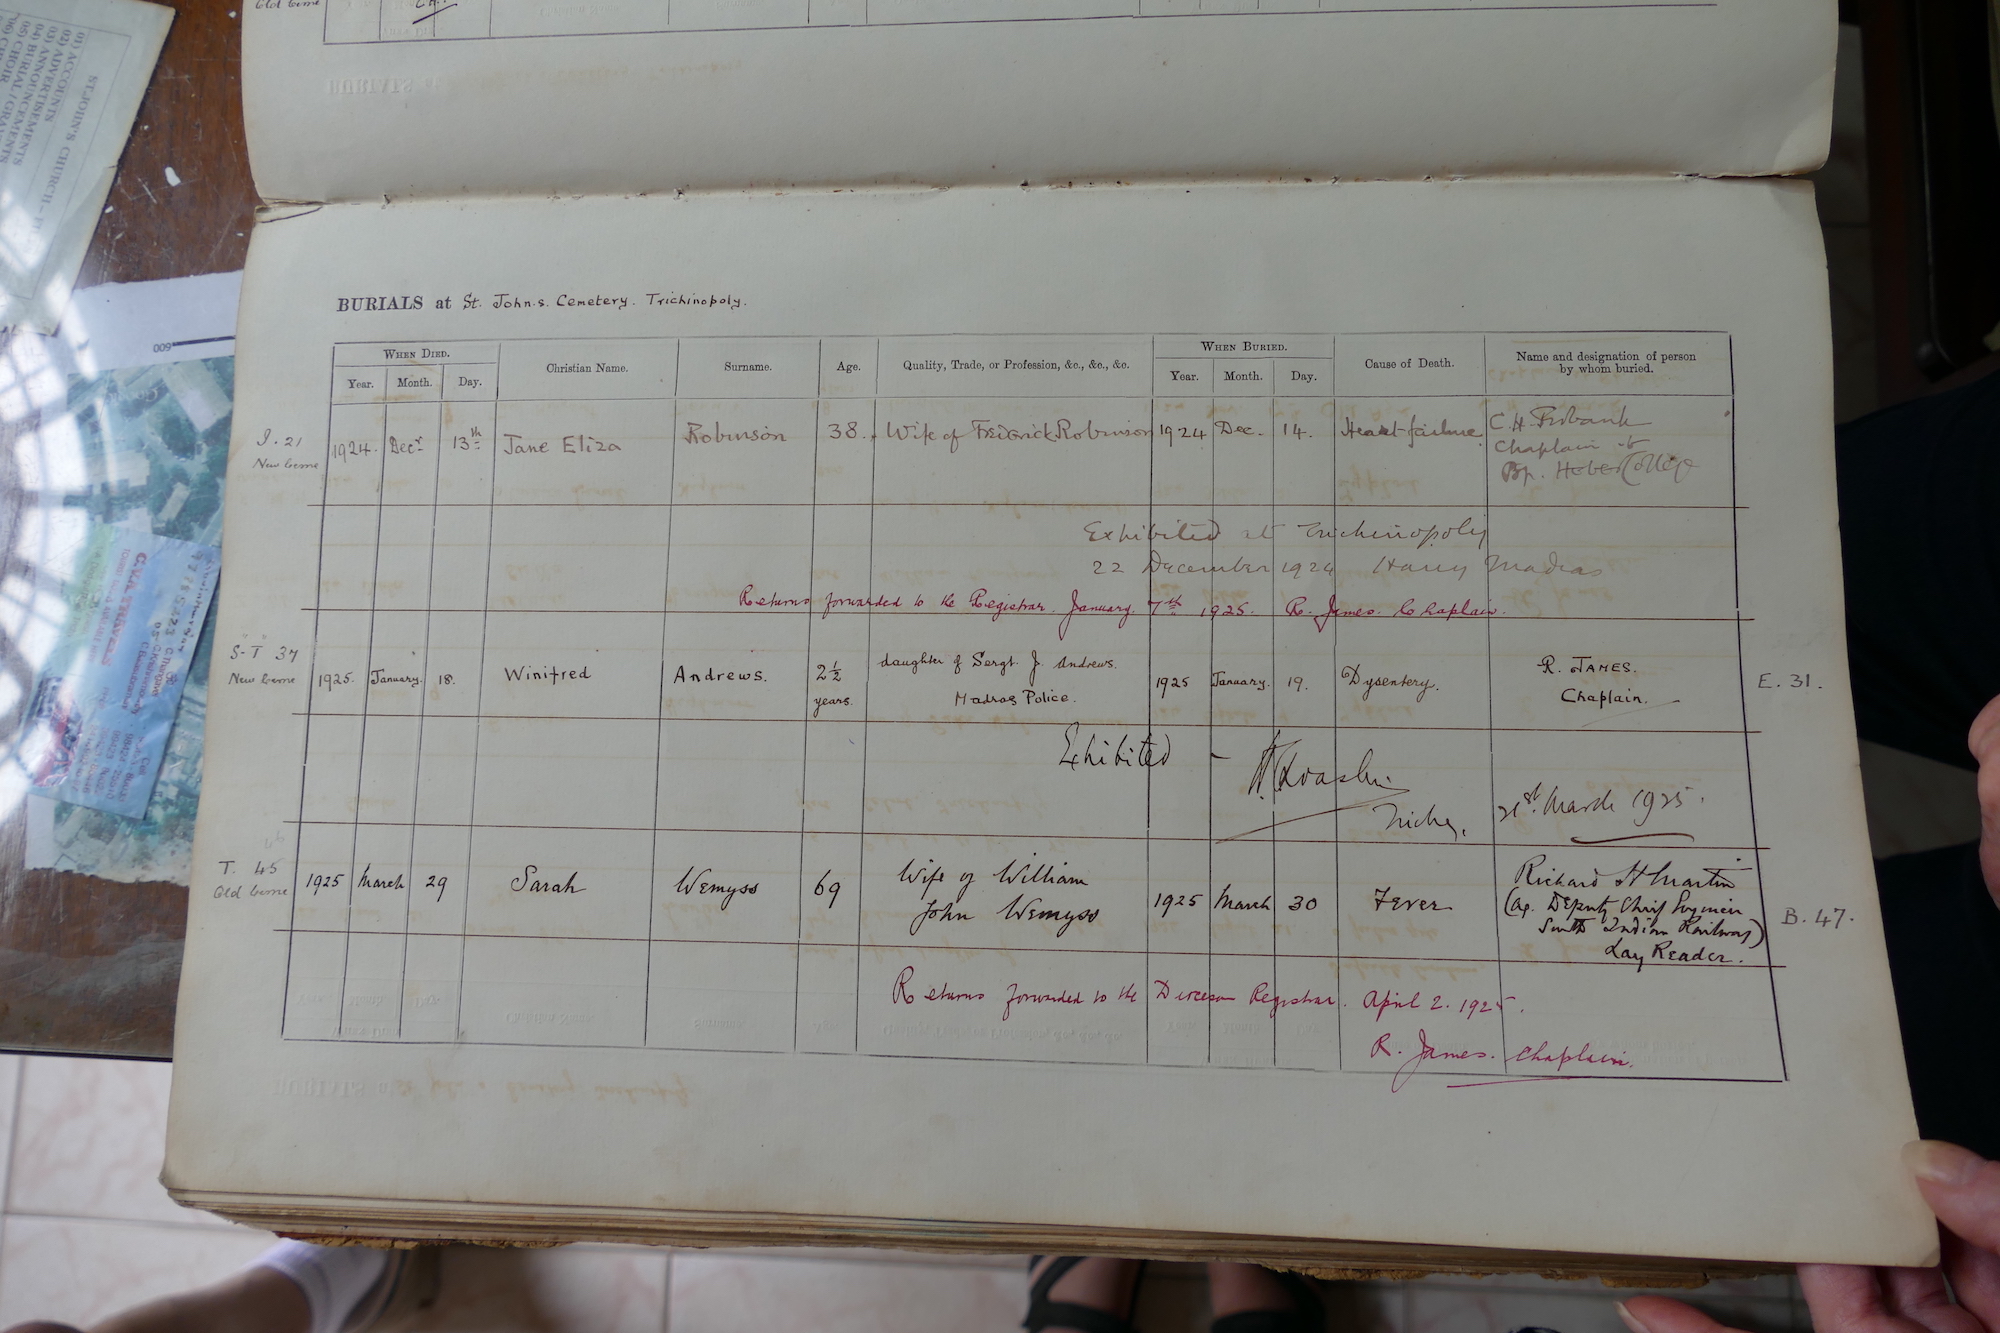 Old Ceme
ST. JOHN'S CHURCH
(01) ACCOUNTS
(02) ADVERTISEMENTS
(03) ANNOUNCEMENTS
(04) BURIAL / GRAVE
(05) CHOIR
BURIALS at St. John.s. Cemetery. Trichinopoly.
WHEN DIED. Christian Name. Surname. Age. Quality, Trade, or Profession, &c., &c., &c. WHEN BURIED. Cause of Death. Name and designation of person by whom buried.
Year. Month. Day. Year. Month. Day.
J. 21
New Ceme
1924. Decr 13th Jane Eliza Robinson 38. Wife of Frederick Robinson 1924 Dec. 14. Heart failure C.H. Firbank
Chaplain
Bp. Heber College
Exhibited at Trichinopoly
22 December 1924 Harry Madras
Returns forwarded to the Registrar. January. 7th 1925. R. James. Chaplain.
S-T 37
New Ceme
1925. January. 18. Winifred Andrews. 2½ years. daughter of Sergt. J. Andrews. Madras Police. 1925 January. 19. Dysentery. R. JAMES. Chaplain. E. 31.
Exhibited -
Trichy, 21st March 1925.
T. 45
Old Ceme
1925 March 29 Sarah Wemyss 69 Wife of William John Wemyss 1925 March 30 Fever Richard H Martin
(Ag. Deputy Chief Engineer
South Indian Railway)
Lay Reader.
B. 47.
Returns forwarded to the Diocesan Registrar. April 2. 1925.
R. James. Chaplain.